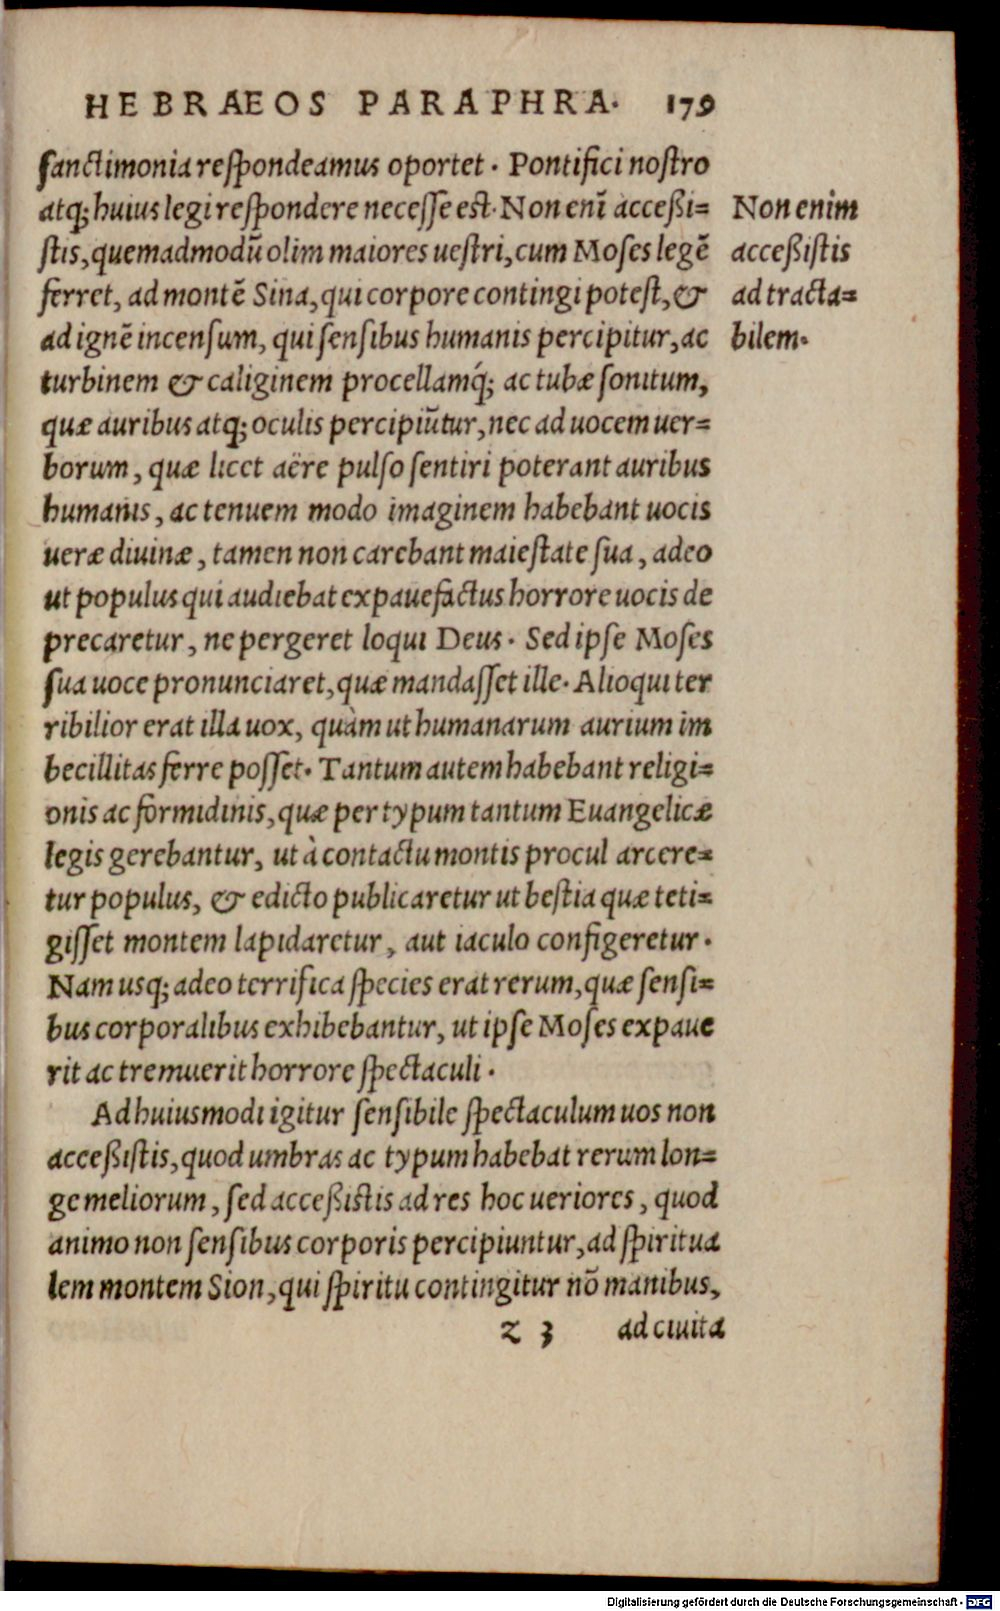 HEBRAEOS PARAPHRA. 179
sanctimonia respondeamus oportet. Pontifici nostro
atq; huius legi respondere necesse est. Non enī acceßi=
stis, quemadmodū olim maiores uestri, cum Moses legē
ferret, ad montē Sina, qui corpore contingi potest, &
ad ignē incensum, qui sensibus humanis percipitur, ac
turbinem & caliginem procellamq́; ac tubæ sonitum,
quæ auribus atq; oculis percipiūtur, nec ad uocem uer=
borum, quæ licet aëre pulso sentiri poterant auribus
humanis, ac tenuem modo imaginem habebant uocis
ueræ diuinæ, tamen non carebant maiestate sua, adeo
ut populus qui audiebat expauefactus horrore uocis de
precaretur, ne pergeret loqui Deus. Sed ipse Moses
sua uoce pronunciaret, quæ mandasset ille. Alioqui ter
ribilior erat illa uox, quàm ut humanarum aurium im
becillitas ferre posset. Tantum autem habebant religi=
onis ac formidinis, quæ per typum tantum Euangelicæ
legis gerebantur, ut à contactu montis procul arcere=
tur populus, & edicto publicaretur ut bestia quæ teti=
gisset montem lapidaretur, aut iaculo configeretur.
Nam usq; adeo terrifica species erat rerum, quæ sensi=
bus corporalibus exhibebantur, ut ipse Moses expaue
rit ac tremuerit horrore spectaculi.
Ad huiusmodi igitur sensibile spectaculum uos non
acceßistis, quod umbras ac typum habebat rerum lon=
ge meliorum, sed acceßistis ad res hoc ueriores, quod
animo non sensibus corporis percipiuntur, ad spiritua
lem montem Sion, qui spiritu contingitur nō manibus,
z 3 ad ciuita
Non enim
acceßistis
ad tracta=
bilem.
Digitalisierung gefördert durch die Deutsche Forschungsgemeinschaft - DFG